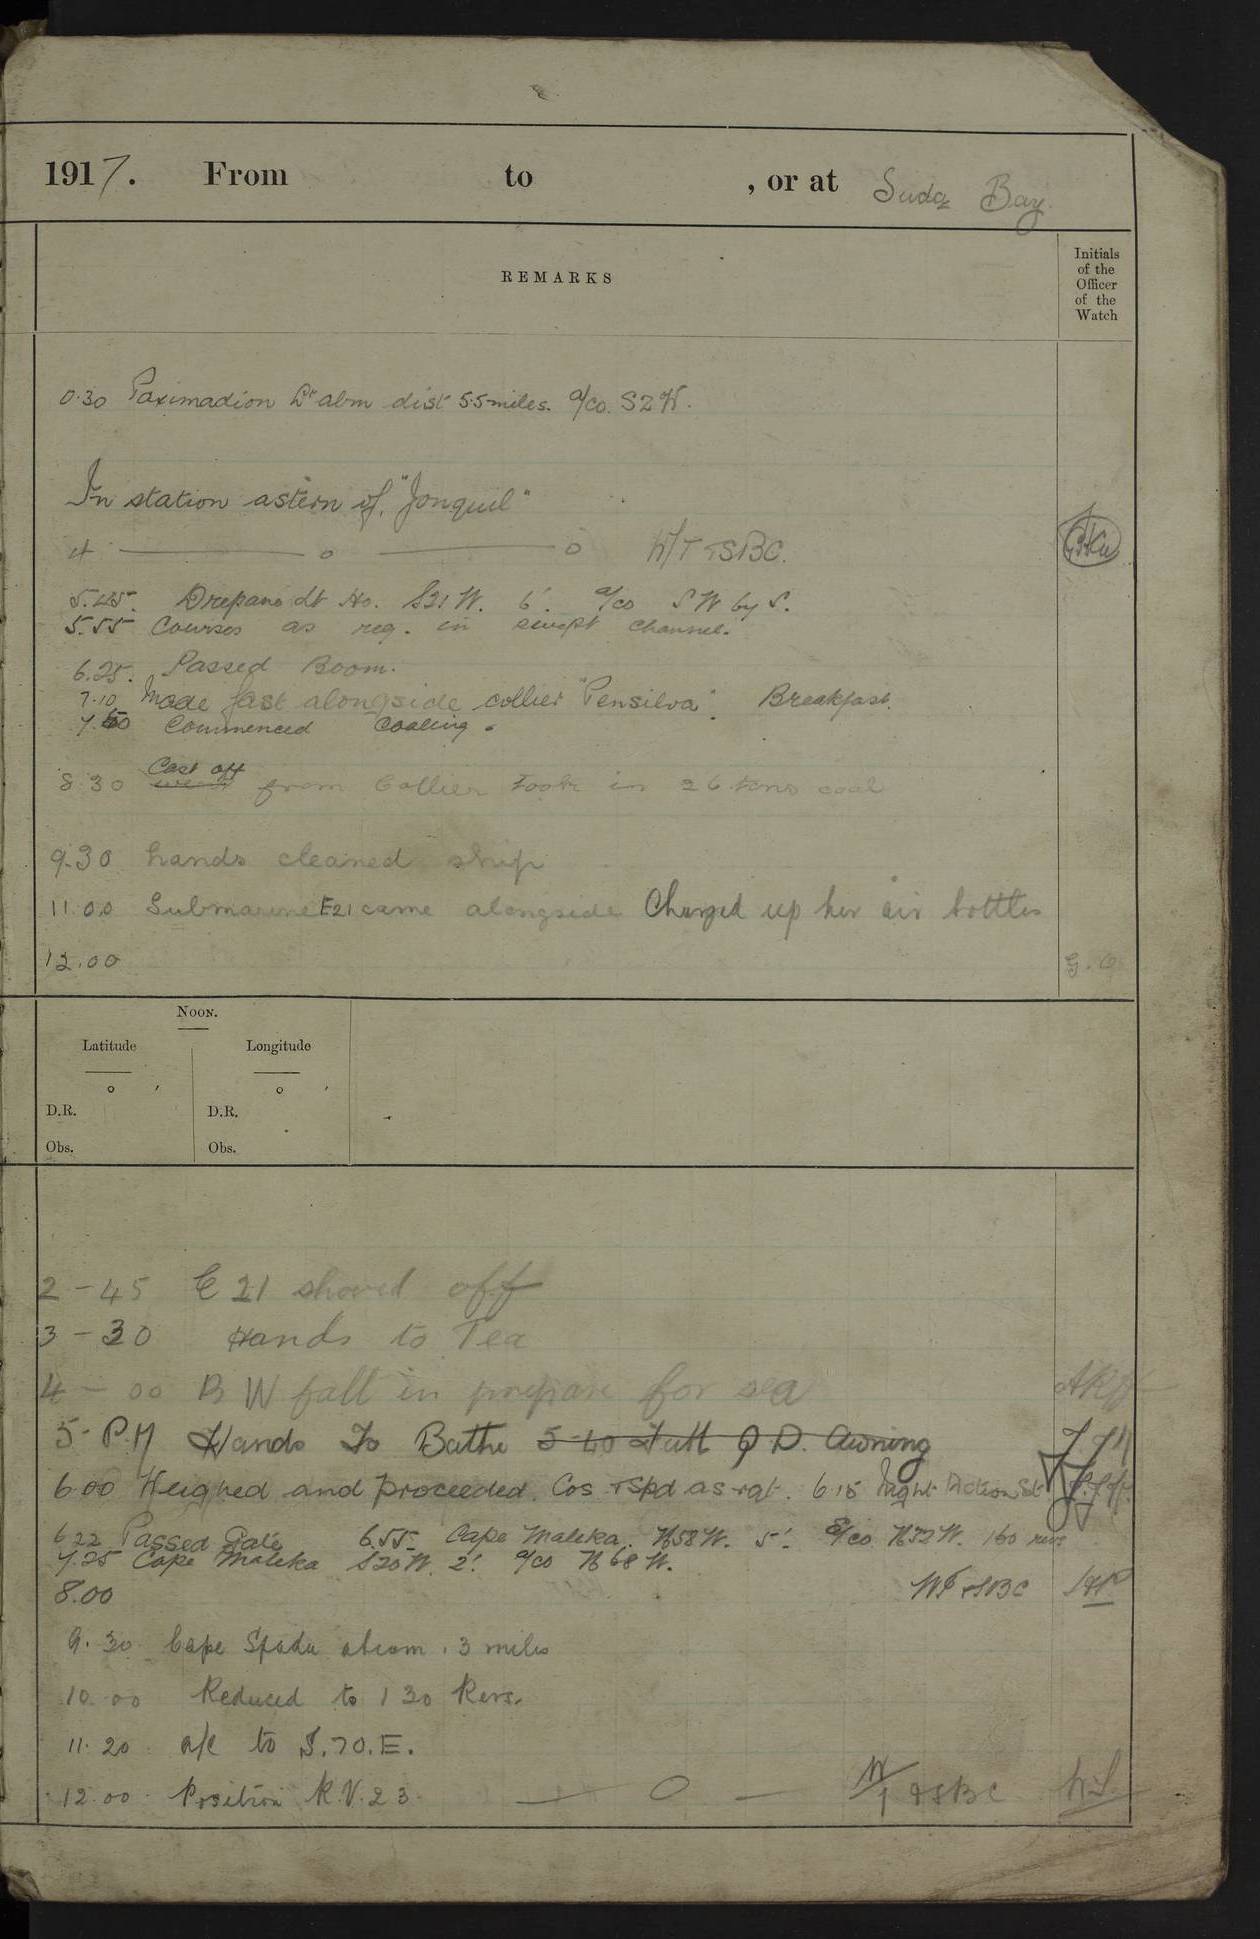 1917. From to , or at Suda Bay.
REMARKS
Initials of the Officer of the Watch
0.30 Paximadion Lt abm dist 5.5 miles. a/co. S2W.
In station astern of "Jonquil"
4 ——— o ——— o W/T + SBC.
5.45. Drepano Lt Ho. S21W. 6'. a/co SW by S.
5.55 Courses as req. in swept channel.
6.25. Passed Boom.
7.10 Made fast alongside collier "Pensilva". Breakfast.
7.50 Commenced Coaling.
Cast off
8.30 from Collier took in 26 tons coal
9.30 hands cleaned ship
11.00 Submarine E21 came alongside Charged up her air bottles
12.00
NOON.
Latitude Longitude
° ' ° '
D.R. D.R.
Obs. Obs.
2-45 E21 shoved off
3-30 Hands to Tea
4-00 B W fall in prepare for sea
5-P.M Hands To Bathe 5-40 Furl Q D. Awning
6.00 Weighed and Proceeded. Cos + spd as rqt. 6.15 Night Action St
6.22 Passed Gate 6.55 Cape Maleka. N58W. 5'. a/co N72W. 160 revs
7.25 Cape Maleka S20W. 2'. a/co N68W.
8.00 WT + SBC
9.30 Cape Spada abeam. 3 miles
10.00 Reduced to 130 Revs.
11.20 a/c to S.70.E.
12.00 Position R.V.23 — O — W/T & SBC